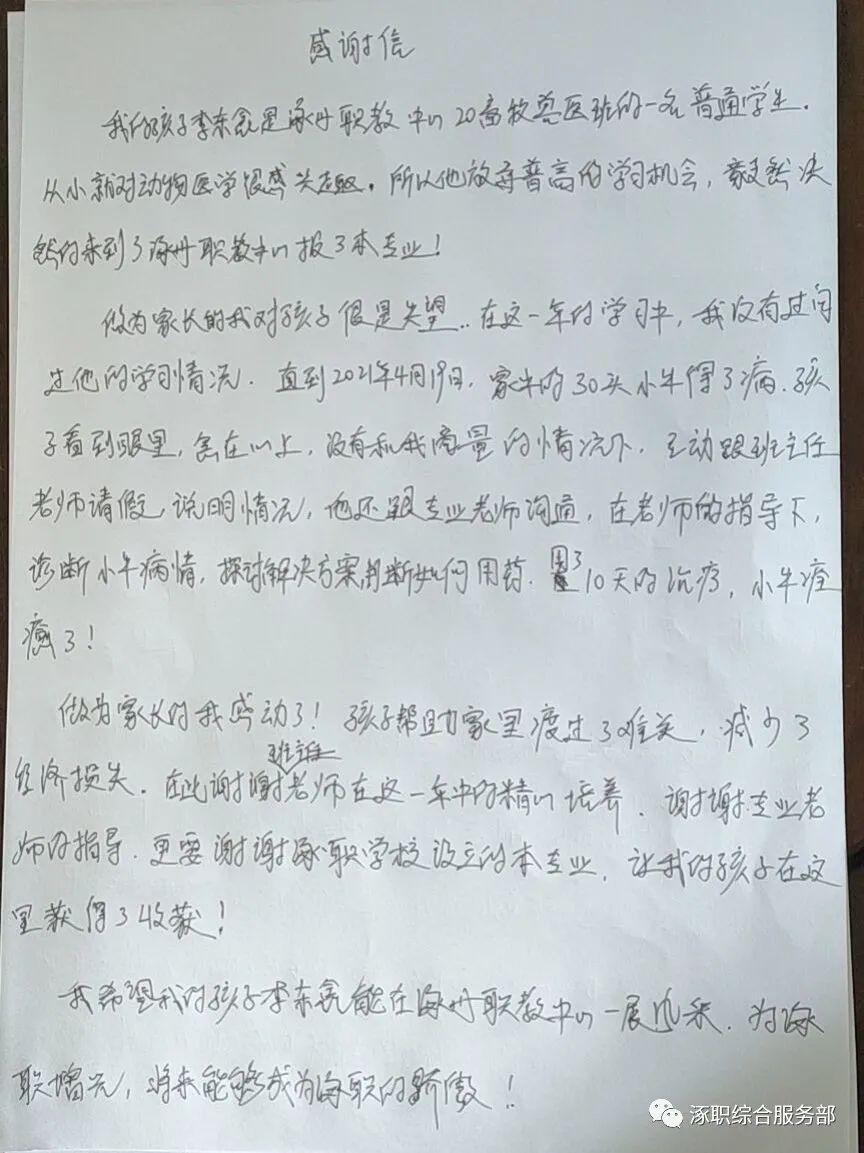 感谢信
我的孩子李东是涿州职教中心20畜牧兽医班的一名普通学生.
从小就对动物医学很感兴趣。所以他放弃普高的学习机会，毅然决
然的来到了涿州职教中心报了本专业！
做为家长的我对孩子很是失望..在这一年的学习中，我没有过问
过他的学习情况.直到2021年4月19日，家中的30头小牛得了病.孩
子看到眼里，急在心上，没有和我商量的情况下.主动跟班主任
老师请假，说明情况，他还跟专业老师沟通，在老师的指导下，
诊断小牛病情，探讨解决方案判断如何用药.用了10天的治疗，小牛痊
癒了！
做为家长的我感动了！孩子帮助家里渡过了难关，减少了
经济损失.在此谢谢班主任老师在这一年中的精心培养.谢谢专业老
师的指导.更要谢谢涿职学校设立的本专业，让我的孩子在这
里获得了收获！
我希望我的孩子李东能在涿州职教中心一展风采.为涿
职增光，将来能够成为涿职的骄傲！
涿职综合服务部